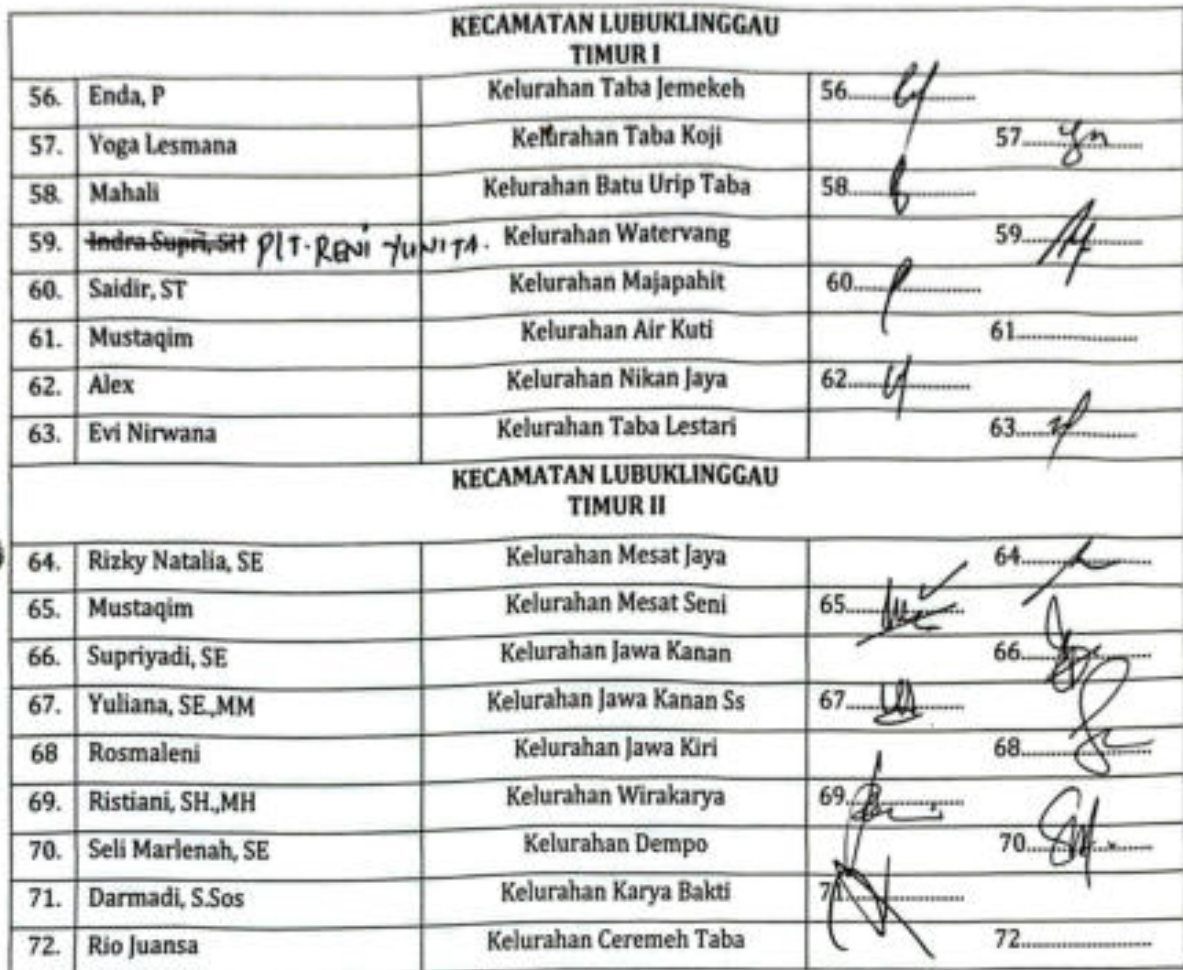 KECAMATAN LUBUKLINGGAU
TIMUR I
56. Enda, P Kelurahan Taba Jemekeh 56
57. Yoga Lesmana Kelurahan Taba Koji 57
58. Mahali Kelurahan Batu Urip Taba 58
59. Indra Supri, SH PLT. RENI YUNITA. Kelurahan Watervang 59
60. Saidir, ST Kelurahan Majapahit 60
61. Mustaqim Kelurahan Air Kuti 61
62. Alex Kelurahan Nikan Jaya 62
63. Evi Nirwana Kelurahan Taba Lestari 63
KECAMATAN LUBUKLINGGAU
TIMUR II
64. Rizky Natalia, SE Kelurahan Mesat Jaya 64
65. Mustaqim Kelurahan Mesat Seni 65
66. Supriyadi, SE Kelurahan Jawa Kanan 66
67. Yuliana, SE.,MM Kelurahan Jawa Kanan Ss 67
68 Rosmaleni Kelurahan Jawa Kiri 68
69. Ristiani, SH.,MH Kelurahan Wirakarya 69
70. Seli Marlenah, SE Kelurahan Dempo 70
71. Darmadi, S.Sos Kelurahan Karya Bakti 71
72. Rio Juansa Kelurahan Ceremeh Taba 72